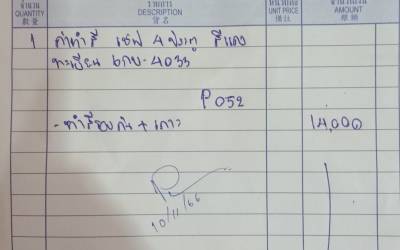 จำนวน รายการ หน่วยละ จำนวนเงิน
QUANTITY DESCRIPTION UNIT PRICE AMOUNT
數量 貨名 備註 銀額
1 ค่าทำสี เชฟ 4 ประตู สีแดง
ทะเบียน 6กบ-4033
P 052
- ทำสีรองกัน + เกาะ 14,000
10/11/66